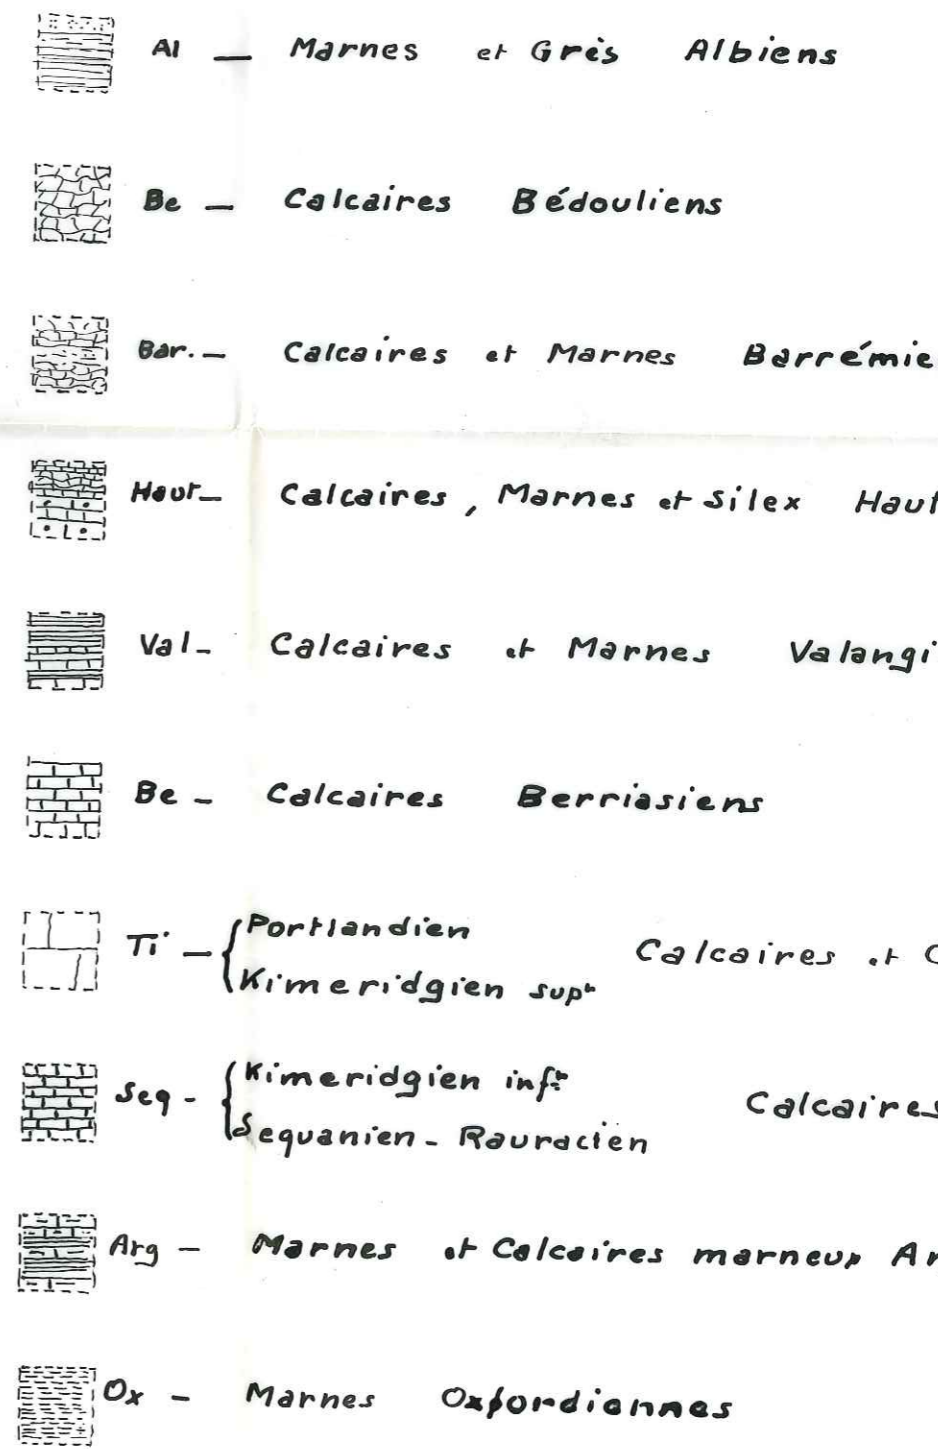 Al — Marnes et Grès Albiens
Be — Calcaires Bédouliens
Bar. — Calcaires et Marnes Barrémie
Haut — Calcaires, Marnes et Silex Haut
Val - Calcaires et Marnes Valangi
Be - Calcaires Berriasiens
Ti — { Portlandien
Kimeridgien supr Calcaires et
Seq - { Kimeridgien infr
Sequanien - Rauracien Calcaires
Arg — Marnes et Calcaires marneux Ar
Ox - Marnes Oxfordiennes